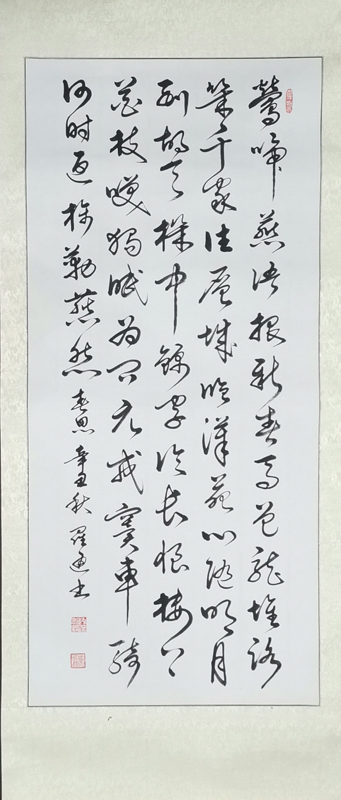 鶯啼燕语报新年马邑龙堆路
幾千家住层城临漢苑心随明月
到胡天機中錦字论长恨楼上
花枝笑獨眠为问元戎窦車騎
何时返旆勒燕然 春思 辛丑秋 羅书